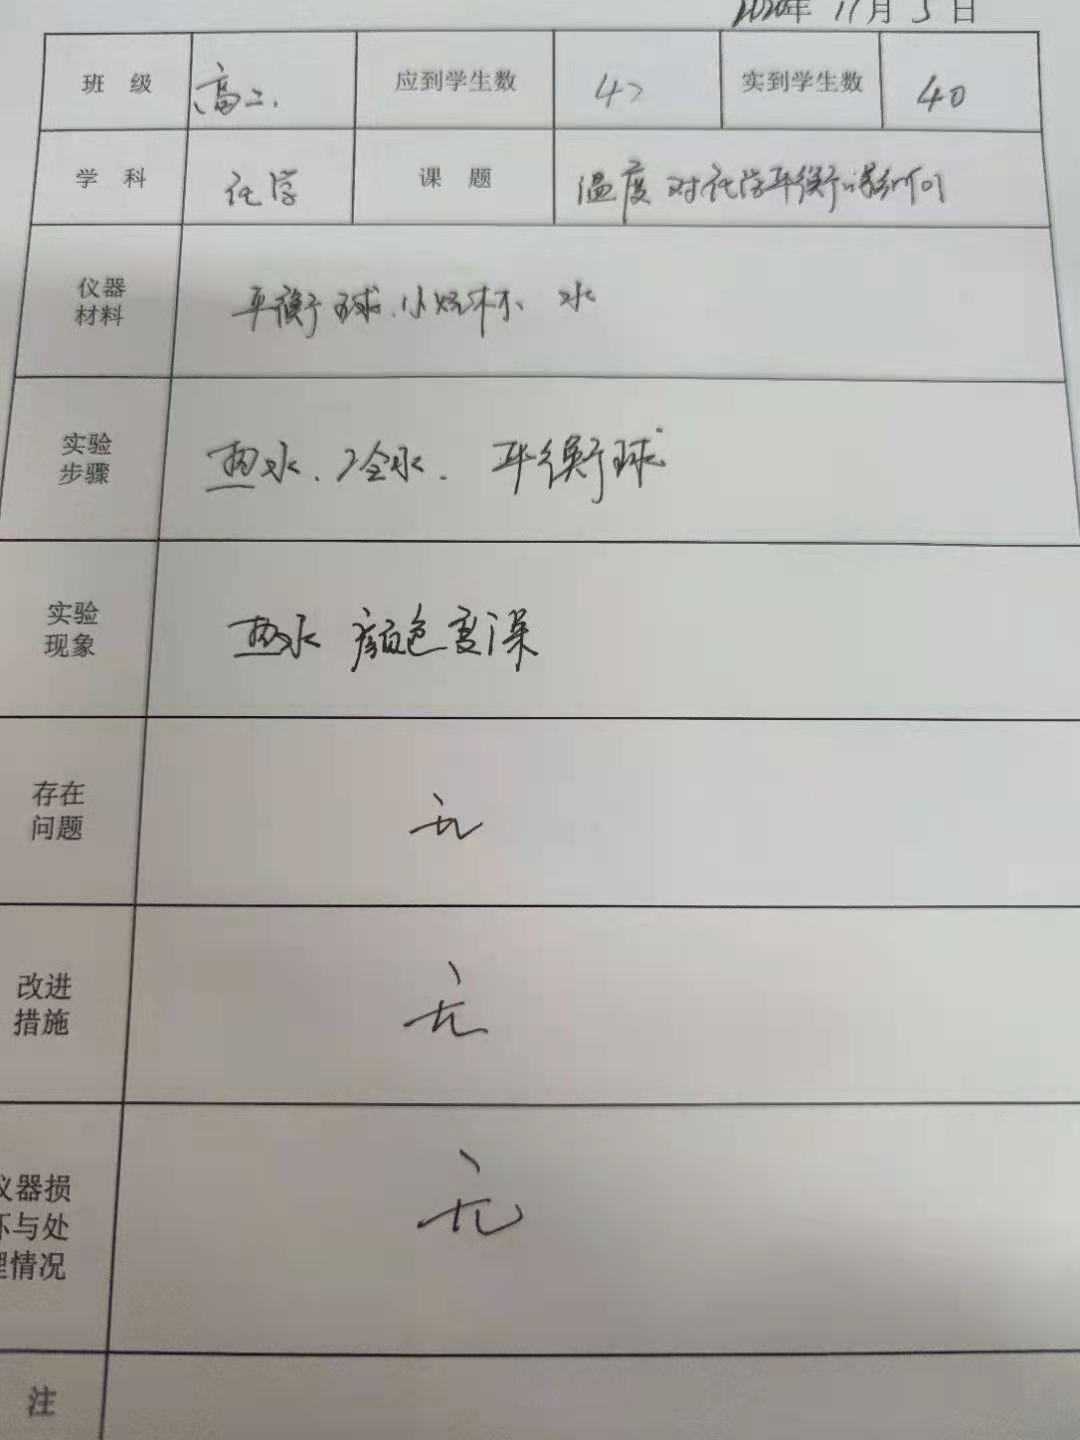 2020年 11月 5日
班 级 高二. 应到学生数 42 实到学生数 40
学 科 化学 课 题 温度对化学平衡的影响
仪器
材料
平衡球、小烧杯、水
实验
步骤
热水、冷水. 平衡球
实验
现象
热水 颜色变深
存在
问题
无
改进
措施
无
仪器损
坏与处
理情况
无
注